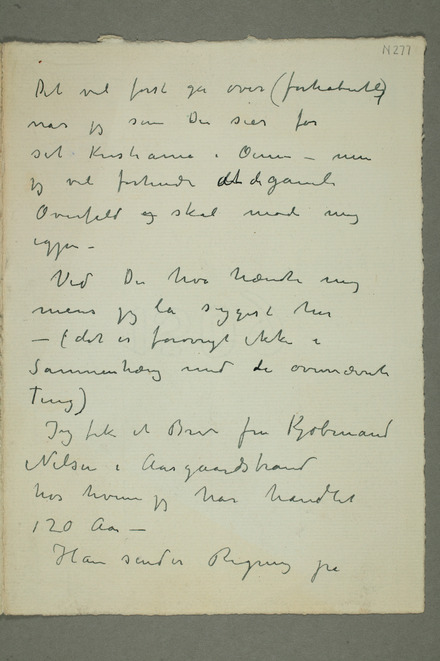 N277
Det vil først gå over (forhåbentlig)
når jeg som De sier før
set Kristiania i Øinene – men
jeg vil forhindre at de gamle
Overfald og skal møde mig
igjen –
Ved De hva hændte mig
mens jeg lå sygest her
– (det er forøvrigt ikke i
Sammenhæng med de ovennævnte
Ting)
Jeg fik et Brev fra Kjøbmand
Nilsen i Aasgaardstrand
hos hvem jeg har handlet
i 20 Aar –
Han sender Regning på